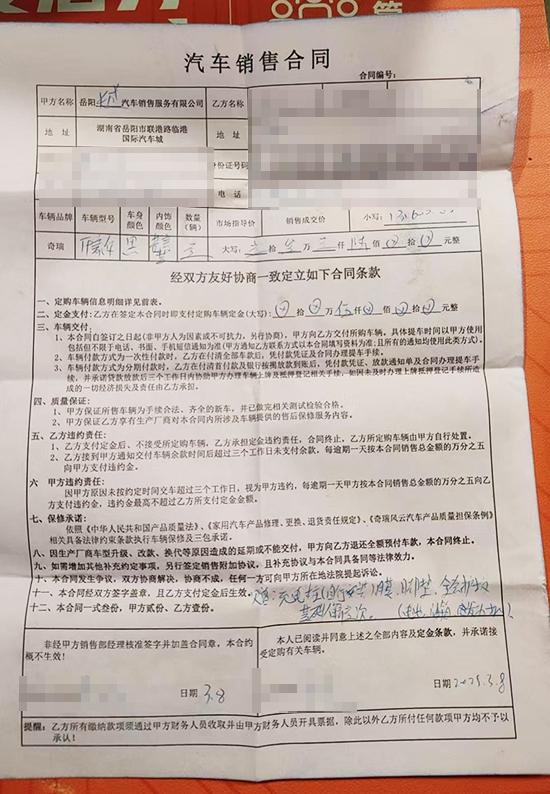 汽车销售合同
合同编号：
甲方名称 岳阳 汽车销售服务有限公司 乙方名称
地 址 湖南省岳阳市联港路临港国际汽车城 地 址
身份证号码
电 话
车辆品牌 车辆型号 车身颜色 内饰颜色 数量(辆) 市场指导价 销售成交价 小写：
奇瑞 黑 大写： 拾 万 仟 佰 拾 元整
经双方友好协商一致定立如下合同条款
一、定购车辆信息明细详见前表。
二、定金支付：乙方在签定本合同时即支付定购车辆定金(大写)： 拾 万 仟 佰 拾 元整
三、车辆交付：
1、本合同自签订之日起(非甲方人为因素或不可抗力，另行协商)，甲方向乙方交付所购车辆。具体提车时间以甲方使用
包括但不限于电话、书面、手机短信通知为准(甲方通知乙方联系方式以本合同填写资料为准；且所有的通知均使用此类方式)。
2、车辆付款方式为一次性付款时，乙方在付清全部车款后，凭付款凭证及合同办理提车手续。
3、车辆付款方式为分期付款时，乙方在付清首付款及银行按揭放款到账后，凭付款凭证、放款通知单及合同办理提车手
续，并承诺贷款放款后三个工作日内协助甲方办理车辆上牌及抵押登记相关手续，如因未及时办理上牌抵押登记手续所造
成的一切经济损失及责任由乙方承担。
四、质量保证：
1、甲方保证所售车辆为手续合法、齐全的新车，并已做完相关测试检验合格。
2、甲方保证乙方享有生产厂商对本合同内所涉及车辆提供的售后保修服务内容。
五、乙方违约责任：
1、乙方支付定金后、不接受所定购车辆，乙方承担定金违约责任，合同终止，乙方所定购车辆由甲方自行处置。
2、乙方接到甲方通知交付车辆余款时间后超过三个工作日未支付余款，每逾期一天按本合同销售总金额的万分之五
向甲方支付违约金。
六 甲方违约责任：
因甲方原因未按约定时间交车超过三个工作日，视为甲方违约，每逾期一天甲方按本合同销售总金额的万分之五向乙
方支付违约金，违约金最高不超过乙方所支付定金金额。
七、保修承诺：
依照《中华人民共和国产品质量法》、《家用汽车产品修理、更换、退货责任规定》、《奇瑞风云汽车产品质量担保条例》
相关具备法律约束条款执行车辆保修及三包承诺。
八、因生产厂商车型升级、改款、换代等原因造成的延期或不能交付，甲方向乙方退还全额预付车款，本合同终止。
九、如需增加其他补充约定事项，另行签定销售附加协议，且补充协议与本合同具备同等法律效力。
十、本合同发生争议，双方协商解决，协商不成，任何一方可向甲方所在地法院提起诉讼。
十一、本合同经双方签字盖章，且乙方支付定金后生效。
十二、本合同一式叁份，甲方贰份、乙方壹份。
非经甲方销售部经理核准签字并加盖合同章，本合约
概不生效！
日期 3.8
本人已阅读并同意上述之全部内容及定金条款，并承诺
接受定购有关车辆。
日期 2025.3.8
提醒：乙方所有缴纳款项须通过甲方财务人员收取并由甲方财务人员开具票据，除此以外乙方所付任何款项甲方均不予以
承认！